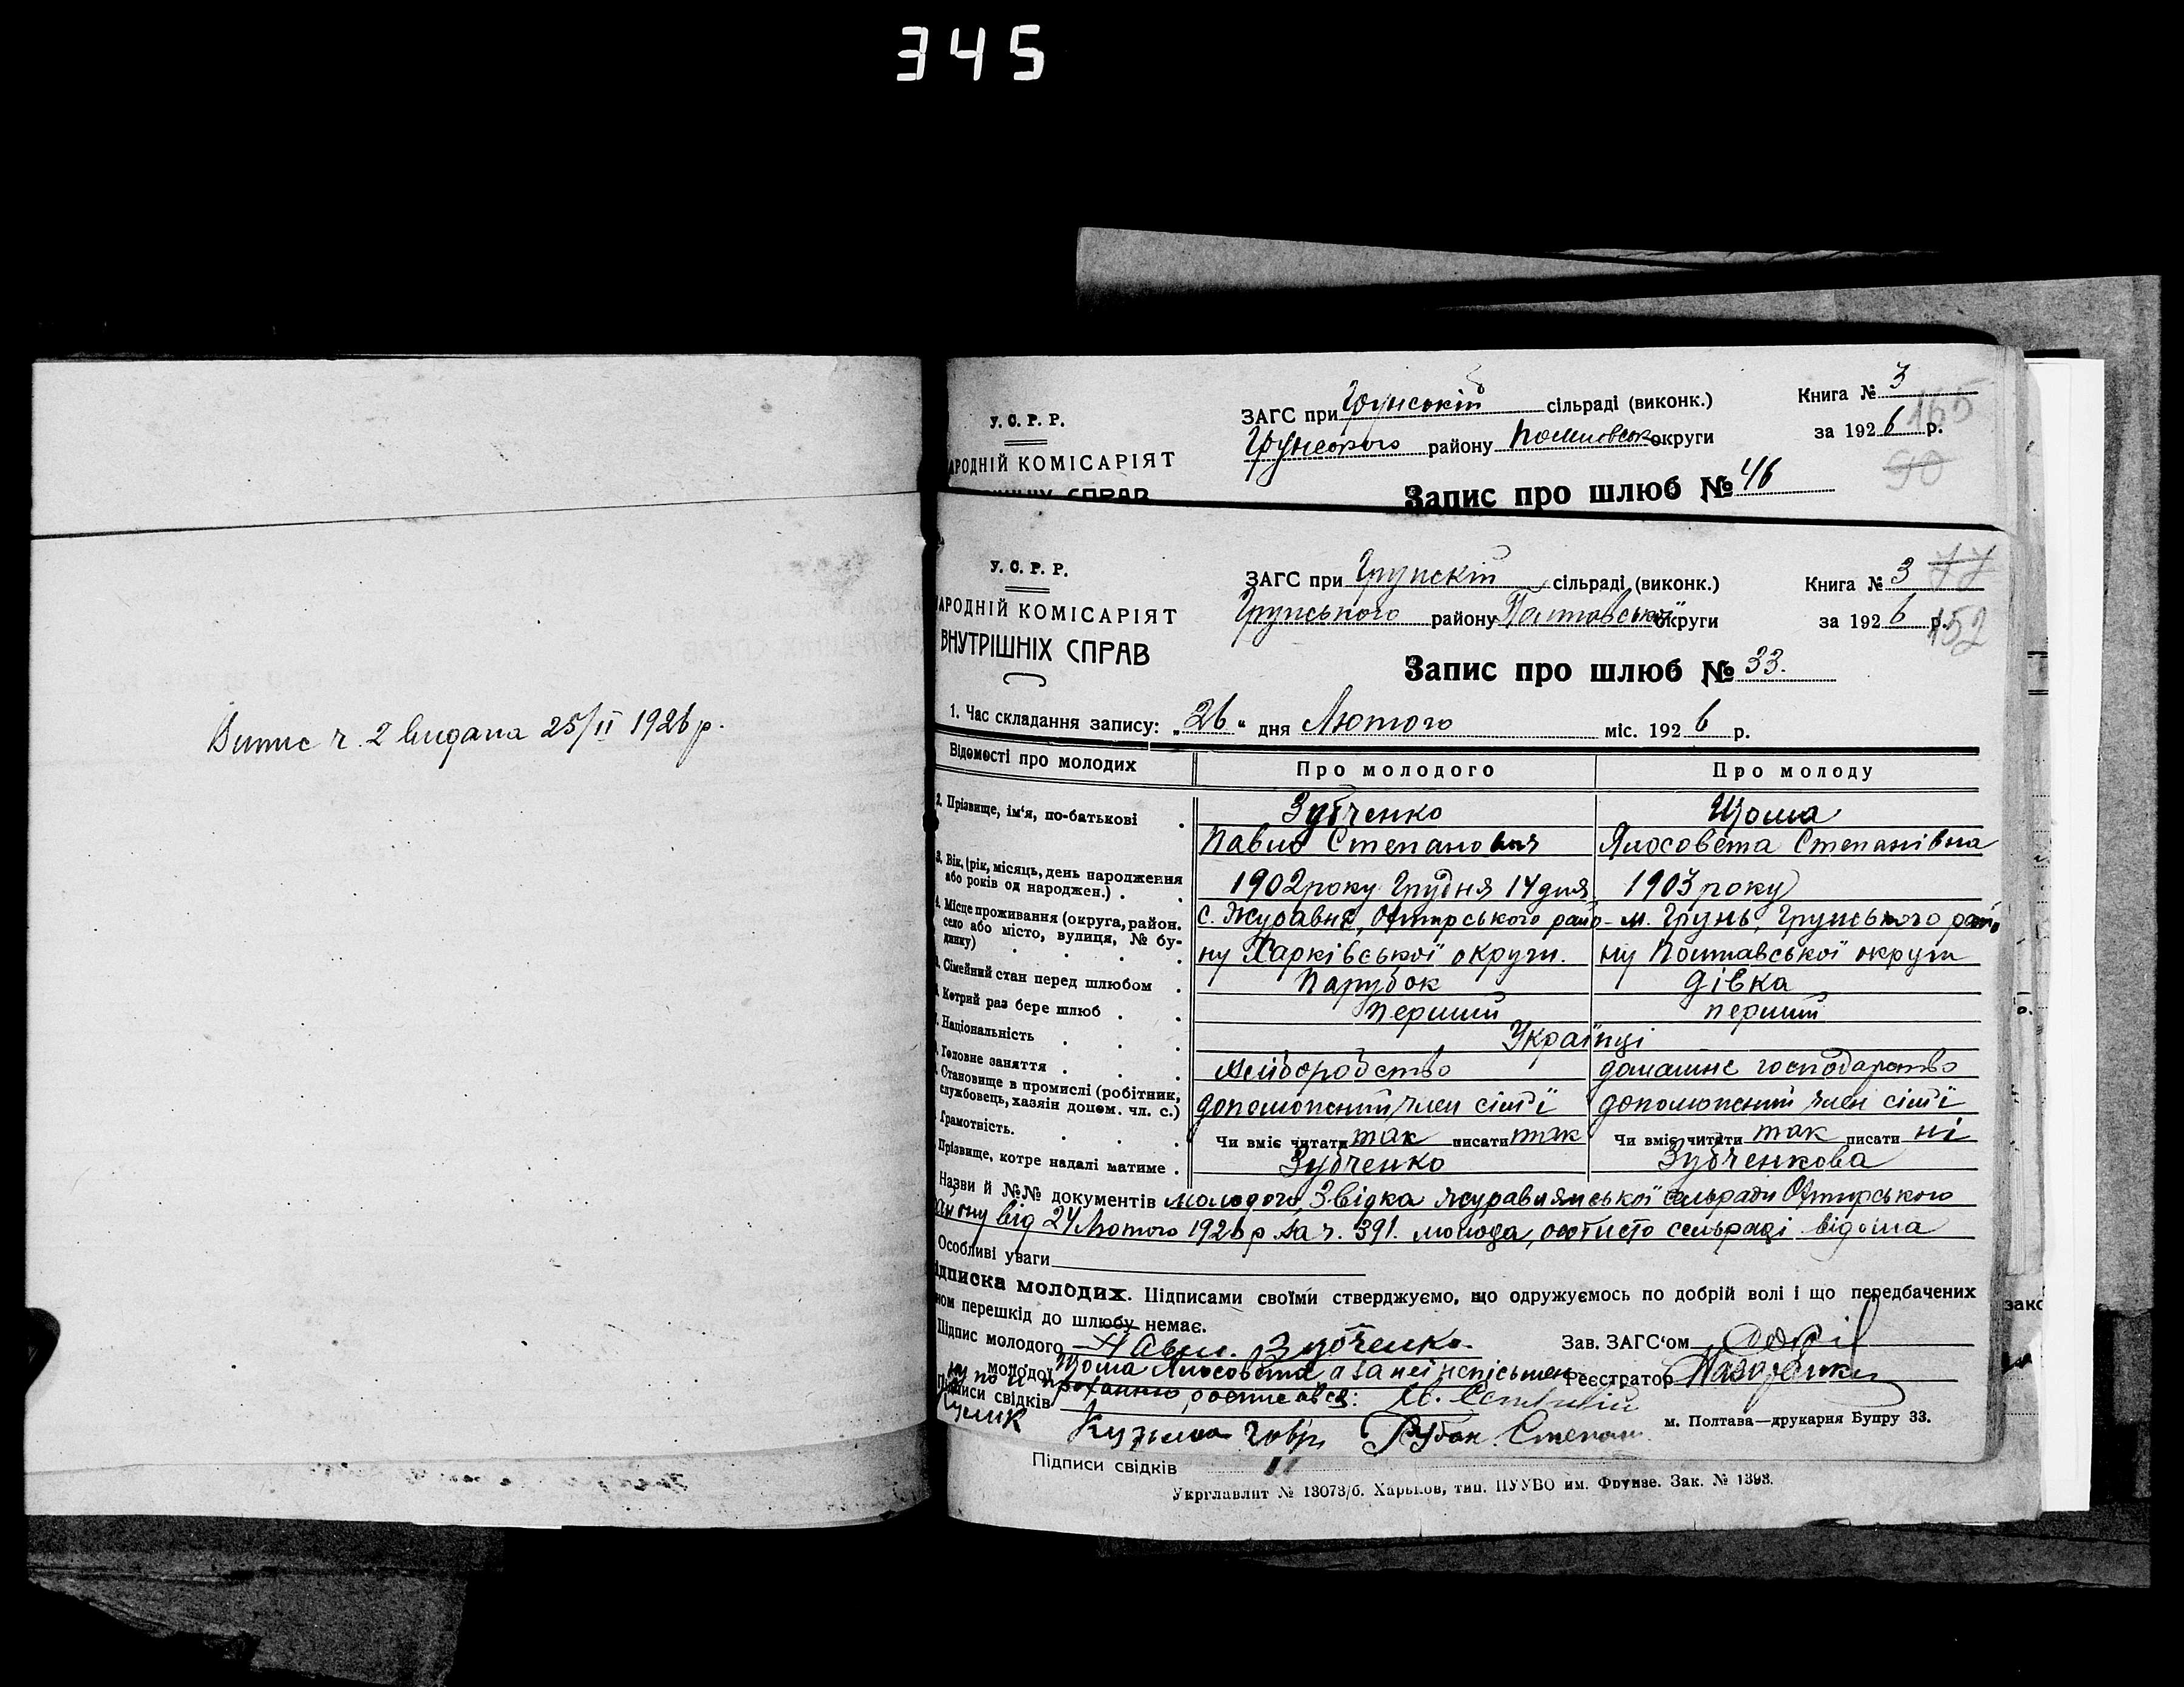 345
Випис ч. 2 видана 25/II 1926 р.
У. С. Р. Р.
АРОДНІЙ КОМІСАРІЯТ
ЗАГС при Грунській сільраді (виконк.)
Грунського району Полтавськ округи
Книга № 3
165
за 1926 р.
90
Запис про шлюб № 46
У. С. Р. Р.
НАРОДНІЙ КОМІСАРІЯТ
ВНУТРІШНІХ СПРАВ
ЗАГС при Грунскій сільраді (виконк.)
Грунського району Полтавської округи
Книга № 3
77
за 1926 р.
152
Запис про шлюб № 33.
1. Час складання запису: „26“ дня Лютого міс. 1926 р.
Відомості про молодих Про молодого Про молоду
2. Прізвище, ім'я, по-батькові . Зубченко Щома
Павло Степанович Ялосовета Степанівна
3. Вік (рік, місяць, день народження
або років од народжен.) . . 1902 року Грудня 14 дня 1903 року
4. Місце проживання (округа, район.
село або місто, вулиця, № бу-
динку) . . . . с. Журавне, Охтирського райо- м. Грунь, Грунського рай
ну Харківської округи. ну Полтавської округи
Сімейний стан перед шлюбом . Парубок дівка
Котрий раз бере шлюб . . перший перший
Національність . . . Українці
Головне заняття . . . хліборобство домашнє господарство
Становище в промислі (робітник,
службовець, хазяїн допом. чл. с.) допоможний член сім'ї допоможний член сім'ї
Грамотність. . . . Чи вміє читати так писати так Чи вміє читати так писати ні
Прізвище, котре надалі матиме . Зубченко Зубченкова
Назви й №№ документів молодого, Звідка журавнянської сельради Охтирського
від 24 Лютого 1926 р за ч. 391. молода, особисто сельраді відома
Особливі уваги
ідписка молодих. Підписами своїми стверджуємо, що одружуємось по добрій волі і що передбачених
ном перешкід до шлюбу немає.
Підпис молодого Павло Зубченко
Зав. ЗАГС'ом
молодої Щома Ялосовета а за неї неписьмен
Реєстратор
ну по її проханню росписався:
Підписи свідків
Кулик Кузьма Гавр. Рубан Степан
м. Полтава—друкарня Бупру 33.
Підписи свідків
Укрглавліт № 13073/б. Харьков, тип. ПУУВО им. Фрунзе. Зак. № 1393.